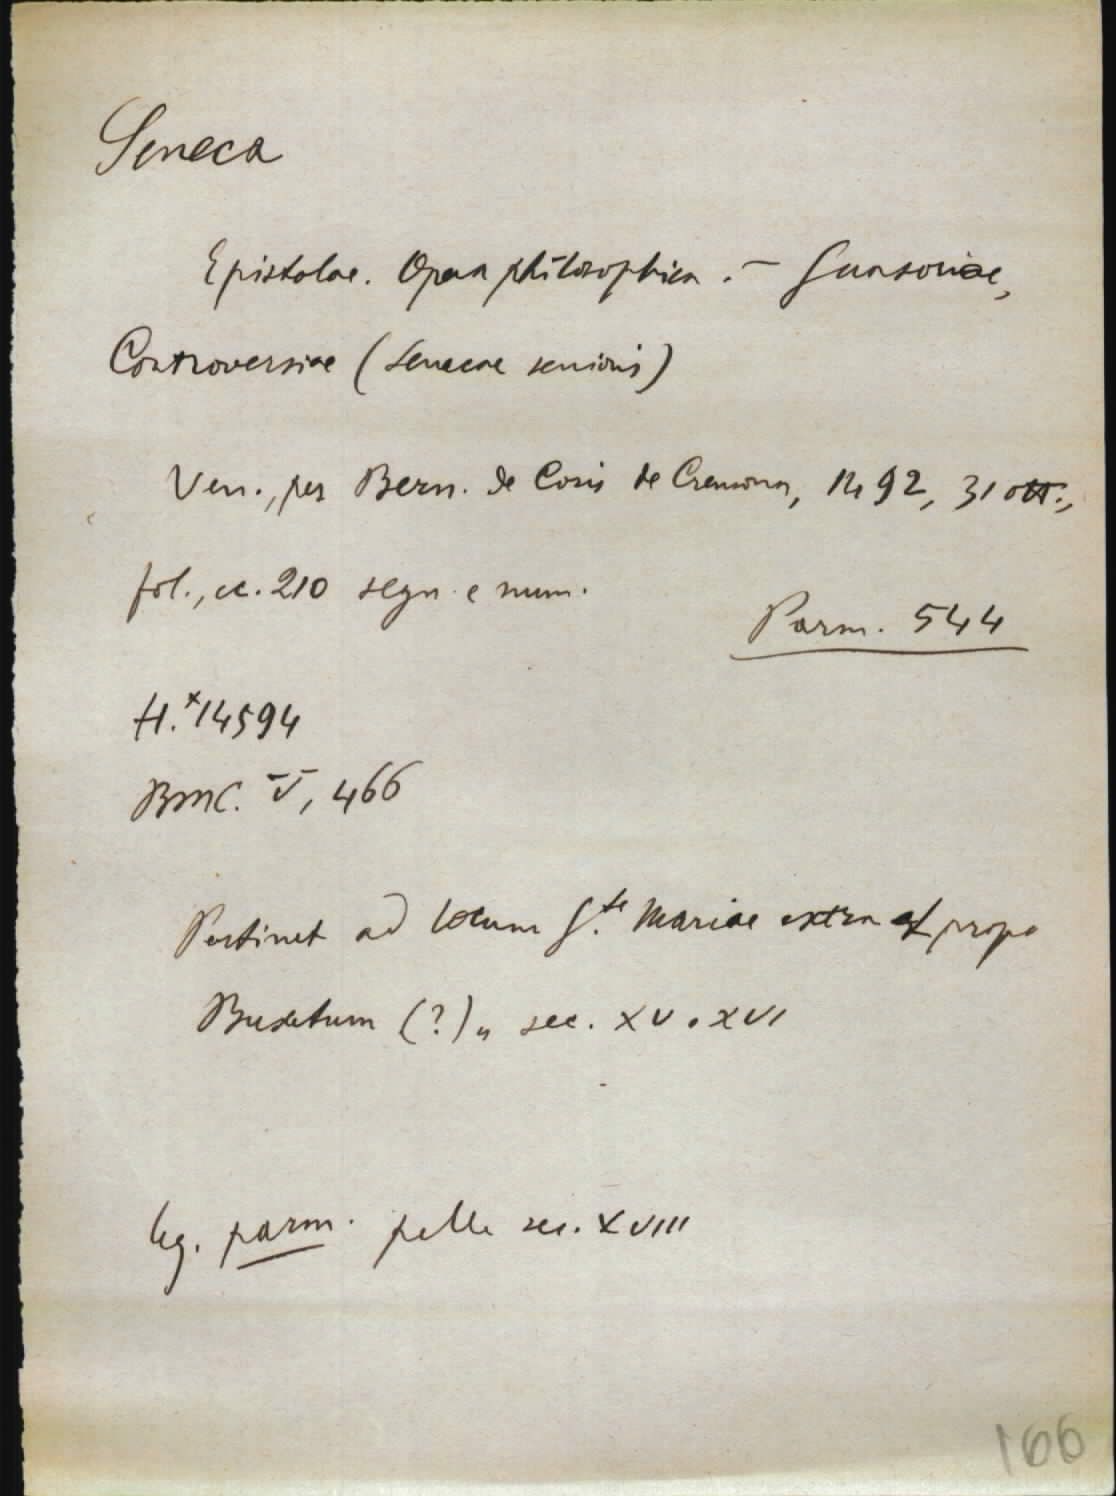 Seneca
Epistolae. Opera philosophica. – Suasoriae,
Controversiae (Senecae senioris)
Ven., per Bern. de Coris de Cremona, 1492, 31 ott.,
fol., cc. 210 segn. e num.
Parm. 544
H.*14594
BMC. V, 466
Pertinet ad locum S.te Mariae extra et prope
Buxetum (?)" sec. XV o XVI
leg. parm. pelle sec. XVIII
166